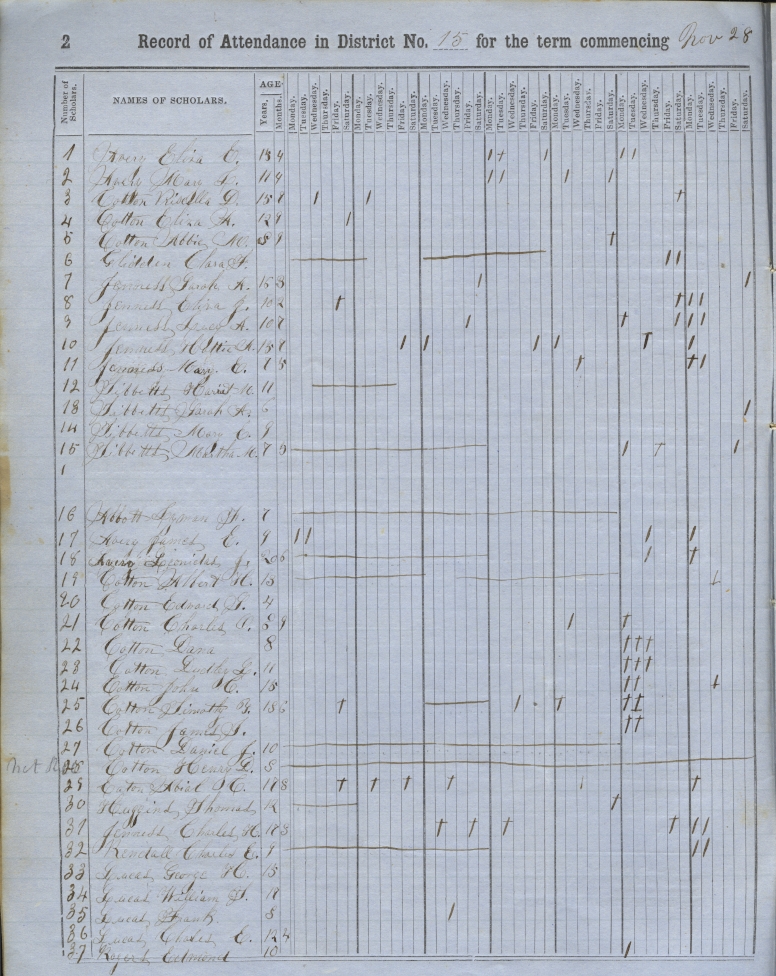 2 Record of Attendance in District No. 15 for the term commencing Nov 28
Number of Scholars. NAMES OF SCHOLARS. AGE Years. Months. Monday. Tuesday. Wednesday. Thursday. Friday. Saturday. Monday. Tuesday. Wednesday. Thursday. Friday. Saturday. Monday. Tuesday. Wednesday. Thursday. Friday. Saturday. Monday. Tuesday. Wednesday. Thursday. Friday. Saturday. Monday. Tuesday. Wednesday. Thursday. Friday. Saturday. Monday. Tuesday. Wednesday. Thursday. Friday. Saturday. Monday. Tuesday. Wednesday. Thursday. Friday. Saturday.
1 Avery Eliza E.
2 Avery Mary 11 9
3 Cotton D.
4 Cotton Eliza A. 12 9
5 Cotton Abbie M. 8 9
6 Glidden Clara A.
7 Jenness Sarah A. 15 3
8 Jenness Eliza J. 10 2
9 Jenness A. 10 7
10 Jenness Hattie A. 15 7
11 Jenness Mary E. 7 5
12 Tibbetts M. 11
13 Tibbetts Sarah A. 6
14 Tibbetts Mary E. 9
15 Tibbetts Martha M. 7 5
1
16 Abbott Lyman 7
17 Avery James E. 9
18 Avery Leonidas J. 20 6
19 Cotton Albert H. 15
20 Cotton Edward 4
21 Cotton Charles 8 9
22 Cotton Dana 8
23 Cotton Dudley L. 11
24 Cotton John C. 15
25 Cotton Timothy 18 6
26 Cotton James
27 Cotton Daniel J. 10
28 Cotton Henry L. 8
29 Eaton Abial 17 8
30 Huggins Thomas 12
31 Jenness Charles H. 17 3
32 Kendall Charles E. 9
33 Lucas George H. 15
34 Lucas William 17
35 Lucas Frank 8
36 Lucas Charles E. 12 4
37 Rogers Edmond 10